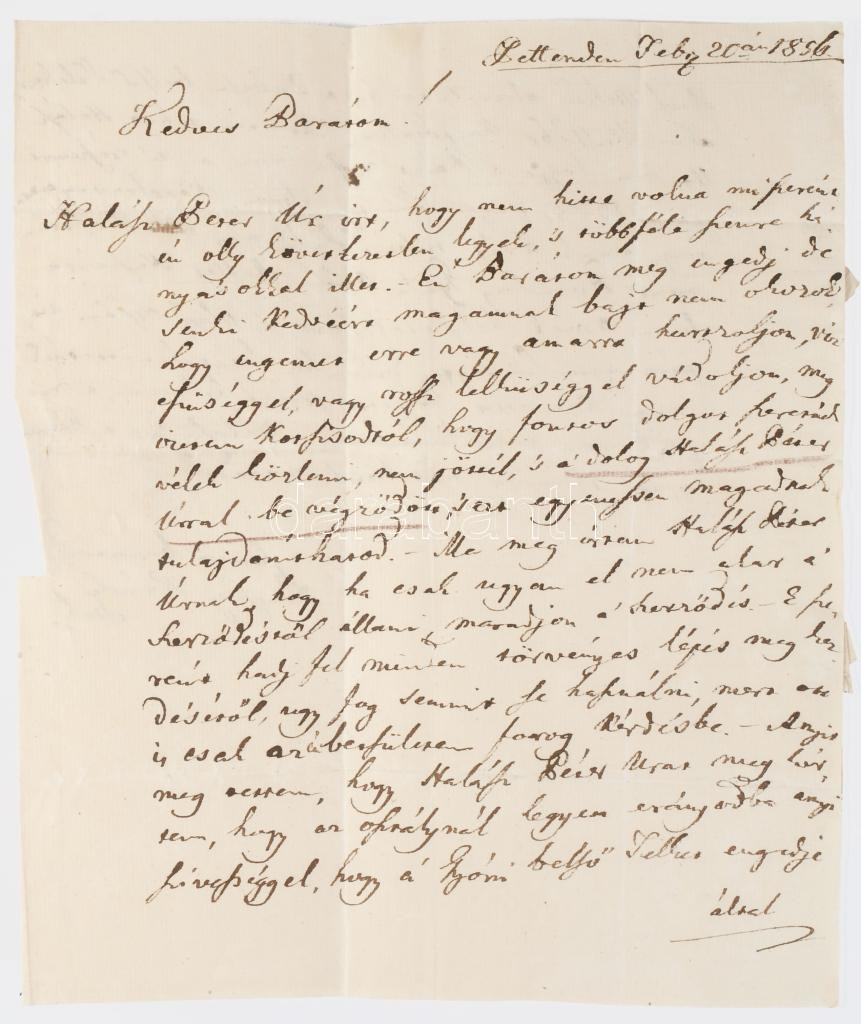 Pettenden Feby 20án 1856.
Kedves Barátom!
Halász Péter Úr írt, hogy nem hitte volna miszerint
én olly következetlen legyek, 's többféle szemre há
nyásokkal illet. - Én Barátom meg engedj de
senki kedvéért magamnak bajt nem okozok
hogy engemet erre vagy amarra hurczoljon,
szüséggel, vagy rossz lelküséggel vádoljon, meg
izentem hogy fontos dolgot szeretnék
véled közleni, nem jöttél, 's a' dolog Halász Péter
Úrral be végződött, 's ezt egyenessen magadnak
tulajdoníthatod. - Ma meg írtam Halász Péter
Úrnak, hogy ha csak ugyan el nem akar a'
szerződéstől állani, maradjon a' szerződés. - E sze,
rént hadj fel minden törvényes lépés meg kez,
déséről, ugy fog semmit se használni, mert
is csak forog kérdésbe. - Annyit
meg tettem, hogy Halász Péter Urat meg kér,
tem, hogy az osztálynál legyen erányodba annyi
szívességgel, hogy a' Győri belső Tellus engedje
által
darabanth